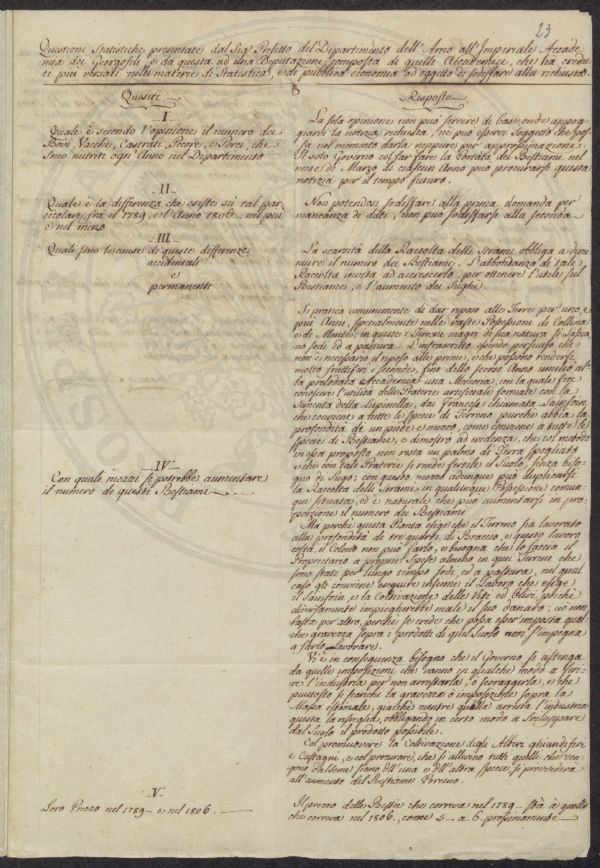 23
Questioni Statistiche presentate dal Sigr Prefetto del Dipartimento dell'Arno all'Imperiale Accade-
mia dei Georgofili e da questa ad una Deputazione composta di quelli Accademici, che ha credu-
ti più versati nelle materie di Statistica, e di pubblica economia ad oggetto di sodisfare alla richiesta.
Quesiti
I
Quale è secondo l'opinione il numero dei
Bovi, Vacche, Castrati, Pecore, e Porci, che
sono nutriti ogn'Anno nel Dipartimento
II
Quale è la differenza che esiste su tal par-
ticolare, fra il 1789, e l'Anno 1806 nel più
e nel meno
III
Quali sono le cause di queste differenze
accidentali
e
permanenti
IV
Con quali mezzi si potrebbe aumentare
il numero di questi Bestiami
V
Loro Prezzo nel 1789 e nel 1806.
Risposte
La sola opinione non può servire di base onde appog-
giarvi la notizia richiesta, nè può esservi Soggetto che pos-
sa nel momento darla neppure per approssimazione.
Il solo Governo col far fare la Portata dei Bestiami nel
mese di Marzo di ciascun Anno può procurarsi questa
notizia per il tempo futuro.
Non potendosi sodisfare alla prima domanda per
mancanza di dati, non può sodisfarsi alla seconda
La scarsità della Raccolta delli Strami obbliga a dimi-
nuire il numero dei Bestiami. L'abbondanza di tale
Raccolta invita ad accrescerlo, per ottenere l'utile sul
Bestiame, e l'aumento dei Sughi.
Si pratica comunemente di dar riposo alle Terre per uno, e
più Anni, specialmente nelle vaste Possessioni di Collina
e di Monte: in queste i Terreni magri di sua natura si lascia-
no sodi ed a pastura. L'infrascritto essendo persuaso che
non è necessario il riposo alle prime, e che possono rendersi
molto fruttifere i secondi, fino dello scorso Anno umiliò al-
la prelodata Accademia una Memoria, con la quale fece
conoscere l'utilità delle Praterie artificiali formate con la
Sementa della Lupinella, dai Francesi chiamata Sainfoin,
che conviene a tutte le specie di Terreno purchè abbia la
profondità di un piede e mezzo, come conviene a tutte le
specie di Bestiame, e dimostrò ad evidenza, che col metodo
in essa proposto non resta un palmo di Terra spogliato
e che con tali Praterie si rende fertile il Suolo, senza biso-
gno di Sugo; con questo mezzo adunque può duplicarsi
la Raccolta delli Strami in qualunque Possessione comun-
que situata, ed è naturale che può aumentarsi in pro-
porzione il numero dei Bestiami
Ma perchè questa Pianta esige che il Terreno sia lavorato
alla profondità di tre quarti di Braccio, e questo lavoro
costa, il Colono non può farlo, e bisogna che lo faccia il
Proprietario a proprie spese almeno in quei Terreni che
sono stati per lungo tempo sodi, ed a pastura, nel qual
caso gli conviene eseguire insieme il Lavoro che esige
il Sainfoin, e la Coltivazione delle Viti ed Olivi, poichè
diversamente impiegherebbe male il suo danaro; ciò non
basta per altro, perchè se crede che possa esser imposta qual-
che gravezza sopra i prodotti di quel Suolo non s'impegna
a farlo Lavorare.
Vi è in conseguenza bisogno che il Governo si astenga
da quelle imposizioni che vanno in qualche modo a feri-
re l'industria per non arrestarla, o scoraggirla, e che
piuttosto si carichi la gravezza o imposizione sopra la
Massa estimale, giacchè mentre quella arresta l'industria
questa la risveglia, obbligando in certo modo a sviluppare
dal Suolo il prodotto possibile.
Col promuovere la Coltivazione degli Alberi ghiandiferi
e Castagni, e col procurare, che si allevino tutti quelli che ven-
gono dal seme siano dell'una e dell'altra specie, si provvederà
all'aumento del Bestiame Porcino.
Il prezzo delle Bestie che correva nel 1789 stà a quello
che correva nel 1806, come 5 a 6 prossimamente